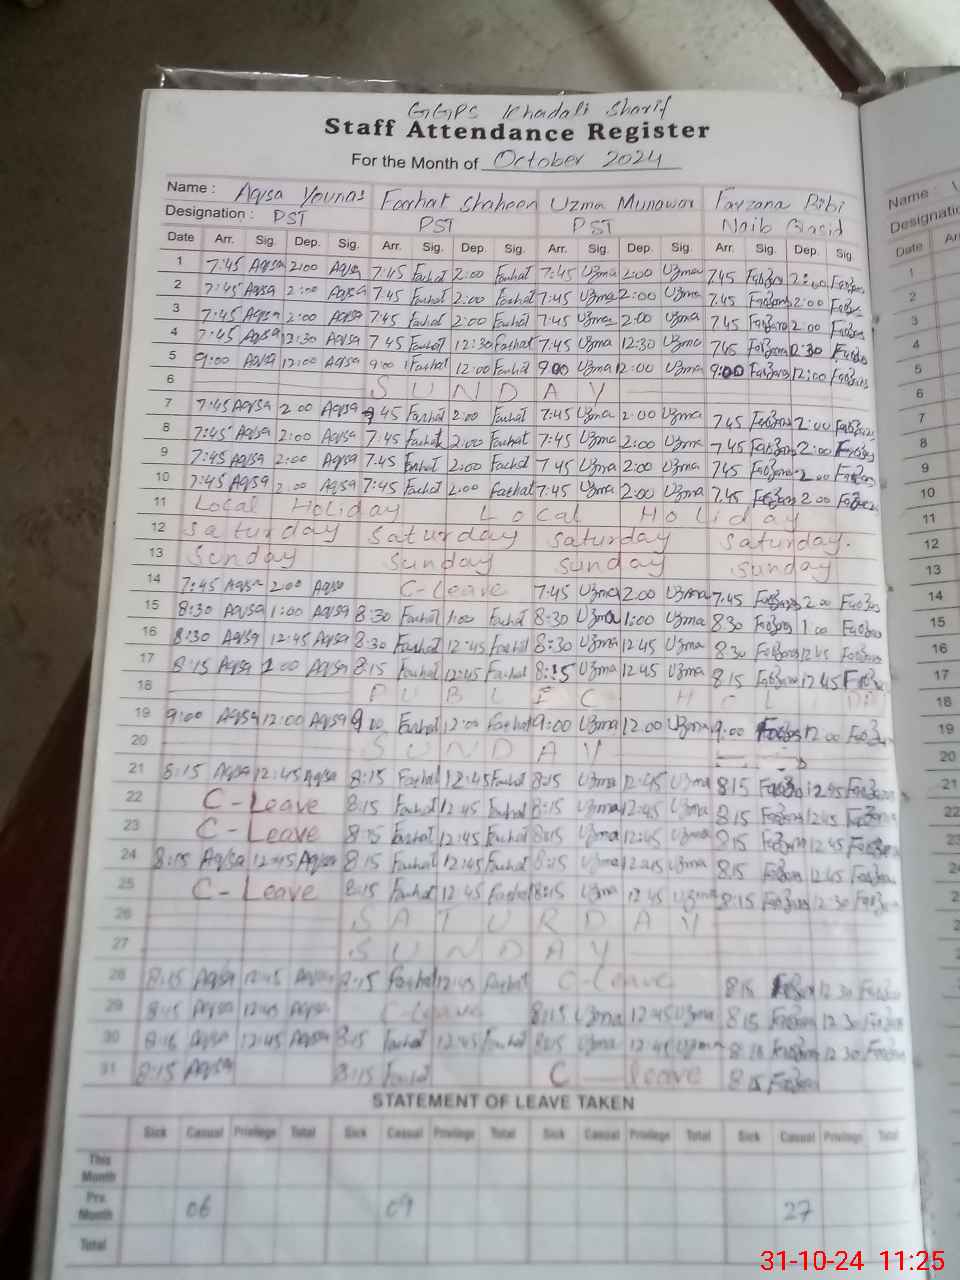 GGPS Khadali Sharif
Staff Attendance Register
For the Month of October 2024
Name : Aqsa Younas Farhat Shaheen Uzma Munawar Farzana Bibi
Designation : PST PST PST Naib
Date Arr. Sig. Dep. Sig. Arr. Sig. Dep. Sig. Arr. Sig. Dep. Sig. Arr. Sig. Dep. Sig.
1 7:45 Aqsa 2:00 Aqsa 7:45 Farhat 2:00 Farhat 7:45 Uzma 2:00 Uzma 7.45 2:00
2 7:45 Aqsa 2:00 Aqsa 7:45 Farhat 2:00 Farhat 7:45 Uzma 2:00 Uzma 7.45 2:00
3 7:45 Aqsa 2:00 Aqsa 7:45 Farhat 2:00 Farhat 7:45 Uzma 2:00 Uzma 7.45 2:00
4 7:45 Aqsa 12:30 Aqsa 7:45 Farhat 12:30 Farhat 7:45 Uzma 12:30 Uzma 7.45 12:30
5 9:00 Aqsa 12:00 Aqsa 9:00 Farhat 12:00 Farhat 9:00 Uzma 12:00 Uzma 9:00 12:00
6 SUNDAY
7 7:45 Aqsa 2:00 Aqsa 7:45 Farhat 2:00 Farhat 7:45 Uzma 2:00 Uzma 7.45 2:00
8 7:45 Aqsa 2:00 Aqsa 7:45 Farhat 2:00 Farhat 7:45 Uzma 2:00 Uzma 7.45 2:00
9 7:45 Aqsa 2:00 Aqsa 7:45 Farhat 2:00 Farhat 7:45 Uzma 2:00 Uzma 7.45 2:00
10 7:45 Aqsa 2:00 Aqsa 7:45 Farhat 2:00 Farhat 7:45 Uzma 2:00 Uzma 7.45 2:00
11 Local Holiday Local Holiday
12 Saturday Saturday Saturday Saturday.
13 Sunday Sunday Sunday Sunday
14 7:45 Aqsa 2:00 Aqsa C-Leave 7:45 Uzma 2:00 Uzma 7.45 2:00
15 8:30 Aqsa 1:00 Aqsa 8:30 Farhat 1:00 Farhat 8:30 Uzma 1:00 Uzma 8.30 1:00
16 8:30 Aqsa 12:45 Aqsa 8:30 Farhat 12:45 Farhat 8:30 Uzma 12:45 Uzma 8.30 12:45
17 8:15 Aqsa 1:00 Aqsa 8:15 Farhat 12:45 Farhat 8:15 Uzma 12:45 Uzma 8.15 12:45
18 PUBLIC
19 9:00 Aqsa 12:00 Aqsa 9:00 Farhat 12:00 Farhat 9:00 Uzma 12:00 Uzma 9:00 12:00
20 SUNDAY
21 8:15 Aqsa 12:45 Aqsa 8:15 Farhat 12:45 Farhat 8:15 Uzma 12:45 Uzma 8.15 12:45
22 C-Leave 8:15 Farhat 12:45 Farhat 8:15 Uzma 12:45 Uzma 8.15 12:45
23 C-Leave 8:15 Farhat 12:45 Farhat 8:15 Uzma 12:45 Uzma 8.15 12:45
24 8:15 Aqsa 12:45 Aqsa 8:15 Farhat 12:45 Farhat 8:15 Uzma 12:45 Uzma 8.15 12:45
25 C-Leave 8:15 Farhat 12:45 Farhat 8:15 Uzma 12:45 Uzma 8:15 12:30
26 SATURDAY
27 SUNDAY
28 8:15 Aqsa 12:45 Aqsa 8:15 Farhat 12:45 Farhat C-Leave 8.15 12:30
29 8:15 Aqsa 12:45 Aqsa C-Leave 8:15 Uzma 12:45 Uzma 8.15 12:30
30 8:15 Aqsa 12:45 Aqsa 8:15 Farhat 12:45 Farhat 8:15 Uzma 12:45 Uzma 8.15 12:30
31 8:15 Aqsa 8:15 Farhat C-leave 8.15
STATEMENT OF LEAVE TAKEN
Sick Casual Privilege Total Sick Casual Privilege Total Sick Casual Privilege Total Sick Casual Privilege Total
This Month
Prv. Month 06 09 27
Total
Name :
Date
1
2
3
4
5
6
7
8
9
10
11
12
13
14
15
16
17
18
19
20
21
22
31-10-24 11:25